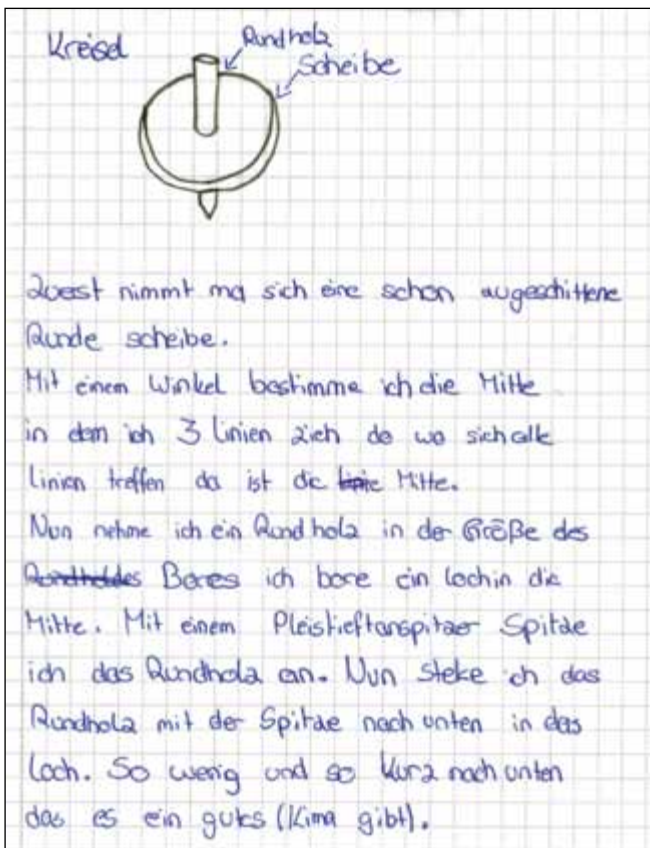 Kreisel
Rundholz
Scheibe
Zuerst nimmt ma sich eine schon augeschittene
Runde scheibe.
Mit einem Winkel bestimme ich die Mitte
in dem ich 3 linien zieh do wo sich alle
linien treffen da ist die linie Mitte.
Nun nehme ich ein Rundholz in der Größe des
Rundholdes Bores ich bore ein loch in die
Mitte. Mit einem Pleistieftanspitzer Spitze
ich das Rundholz an. Nun steke ich das
Rundholz mit der Spitze nach unten in das
Loch. So wenig und so kurz nach unten
das es ein gutes (Kima gibt).